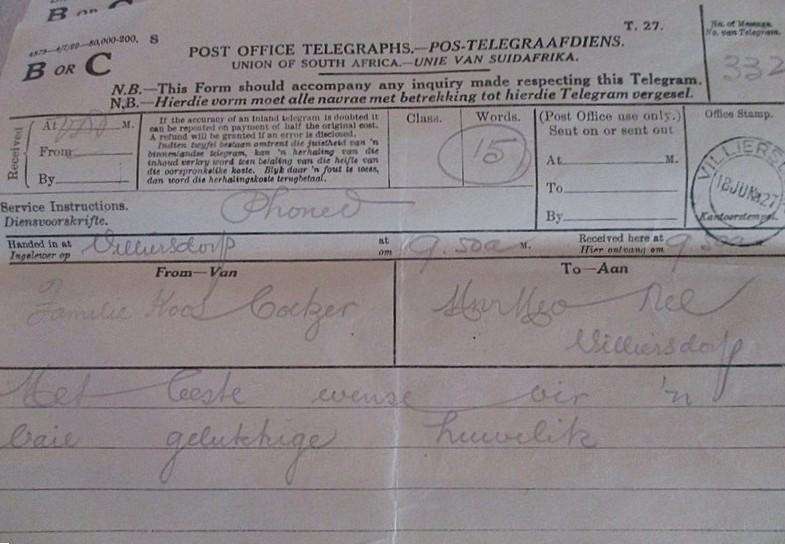 B OR
4873—4/7/20—80,000-200. S
T. 27.
No. of Message.
No. van Telegram.
B OR C
POST OFFICE TELEGRAPHS.—POS-TELEGRAAFDIENS.
UNION OF SOUTH AFRICA.—UNIE VAN SUIDAFRIKA.
332
N.B.—This Form should accompany any inquiry made respecting this Telegram.
N.B.—Hierdie vorm moet alle navrae met betrekking tot hierdie Telegram vergesel.
Received
At M.
From
By
If the accuracy of an Inland telegram is doubted it
can be repeated on payment of half the original cost.
A refund will be granted if an error is disclosed.
Indien twyfel bestaan omtrent die juistheid van 'n
binnenlandse telegram, kan 'n herhaling van die
inhoud verkry word teen betaling van die helfte van
die oorspronkelike koste. Blyk daar 'n fout te wees,
dan word die herhalingskoste terugbetaal.
Class.
Words.
15
(Post Office use only.)
Sent on or sent out
At M.
To
By
Office Stamp.
VILLIERSD
18 JUN 27
Kantoorstempel.
Service Instructions.
Diensvoorskrifte.
Phoned
Handed in at
Ingelewer op
Villiersdorp
at
om
9.50a M.
Received here at
Hier ontvang om
9.50a
From—Van
To—Aan
Familie Koos Coetzer
Nel
Villiersdorp
Met beste wense vir 'n
baie gelukkige huwelik